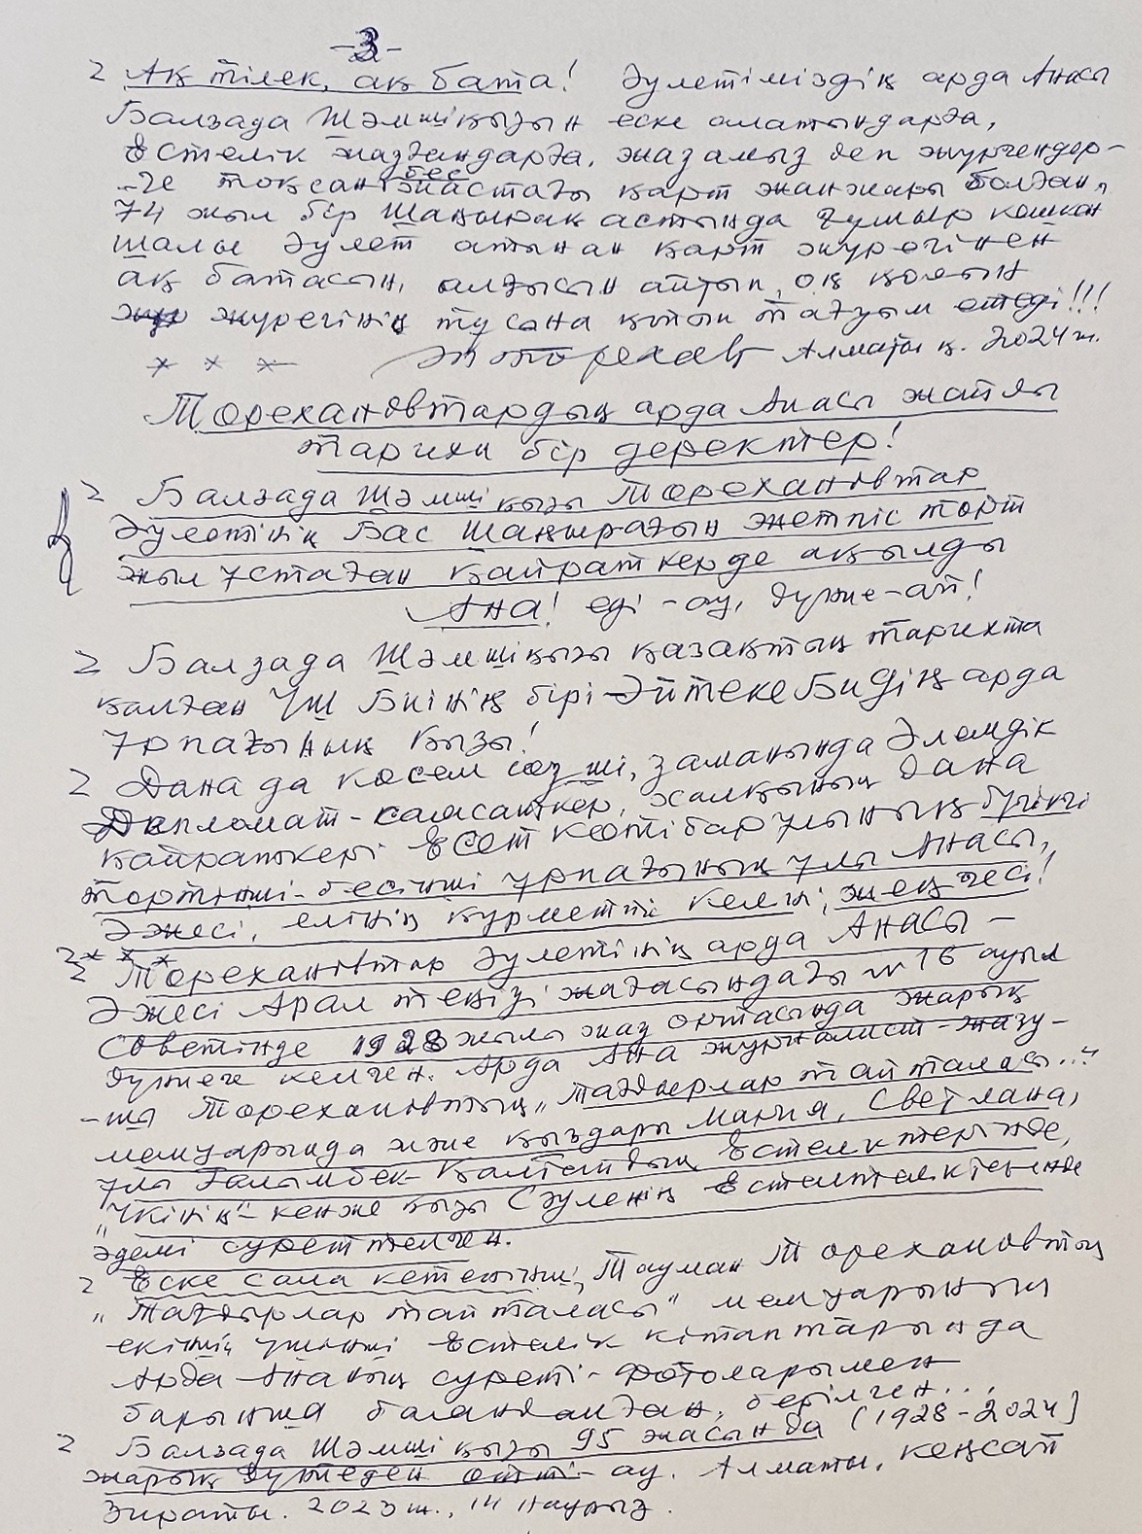 -3-
Ақ тілек, ақ бата! Әулетіміздің арда Анасы
Балзада Шәмшіқызын еске алатындарға,
Естелік жазғандарға, жазамыз деп жүргендер-
-ге тоқсан бес жастағы қарт жанжары болған,
74 жыл бір Шаңырақ астында ғұмыр кешкен
шалы Әулет атынан қарт жүрегінен
ақ батасын, алғысын айтып, оң қолын
жүрегінің тұсына қойып тағзым етеді!!!
* * * Алматы қ. 2024 ж.
Торехановтардың арда Анасы жайлы
тарихи бір деректер!
Балзада Шәмші қызы Торехановтар
Әулетінің Бас Шаңырағын жетпіс төрт
жыл ұстаған қайраткерде ақылды
Ана! еді-ау, дүние-ай!
Балзада Шәмшіқызы қазақтың тарихта
қалған Үш Биінің бірі-Әйтеке Бидің арда
ұрпағының қызы!
Дана да көсем сөз ші, заманында Әлемдік
Дипломат-саясаткер, халқының дана
қайраткері Есет Көтібарұлының бүгінгі
төртінші-бесінші ұрпағының ұлы Анасы,
Әжесі, елінің құрметті келіні, жеңгесі!
* * *
Торехановтар Әулетінің арда Анасы –
Әжесі Арал теңізі жағасындағы №16 ауыл
Советінде 1928 жылы жаз ортасында жарық
дүниеге келген. Арда Ана журналист-жазу-
-шы Торехановтың „Тағдырлар тайталасы..."
мемуарында және қыздары Мария, Светлана,
ұлы Ғалымбек- Естеліктерінде,
кенже қызы Сәуленің
әдемі суреттелген.
Еске сала кетейінші, Тауман Торехановтың
„Тағдырлар тайталасы" мемуарының
екінші үшінші Естелік кітаптарында
Арда Ананың суреті-Фотоларымен
барынша баяндалған, берілген...
Балзада Шәмші қызы 95 жасында (1928-2024)
жарық дүниеден өтті-ау. Алматы, кеңсай
Зираты. 2023 ж., 14 наурыз.